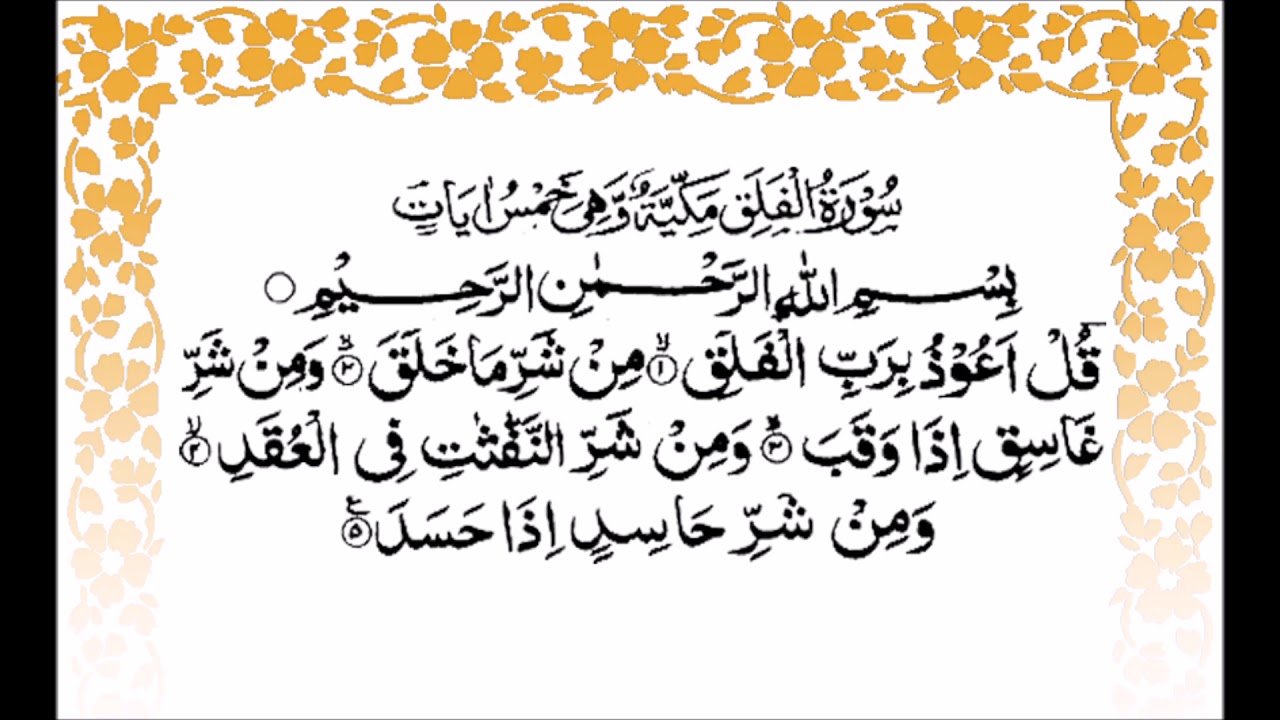 سُوْرَةُ الْفَلَقِ مَكِّيَّةٌ وَّهِيَ خَمْسُ اٰيَاتٍ
بِسْمِ اللّٰهِ الرَّحْمٰنِ الرَّحِيْمِ ۝
قُلْ اَعُوْذُ بِرَبِّ الْفَلَقِ ۙ﴿۱﴾ مِنْ شَرِّ مَا خَلَقَ ۙ﴿۲﴾ وَمِنْ شَرِّ
غَاسِقٍ اِذَا وَقَبَ ۙ﴿۳﴾ وَمِنْ شَرِّ النَّفّٰثٰتِ فِى الْعُقَدِ ۙ﴿۴﴾
وَمِنْ شَرِّ حَاسِدٍ اِذَا حَسَدَ ﴿۵﴾ ع